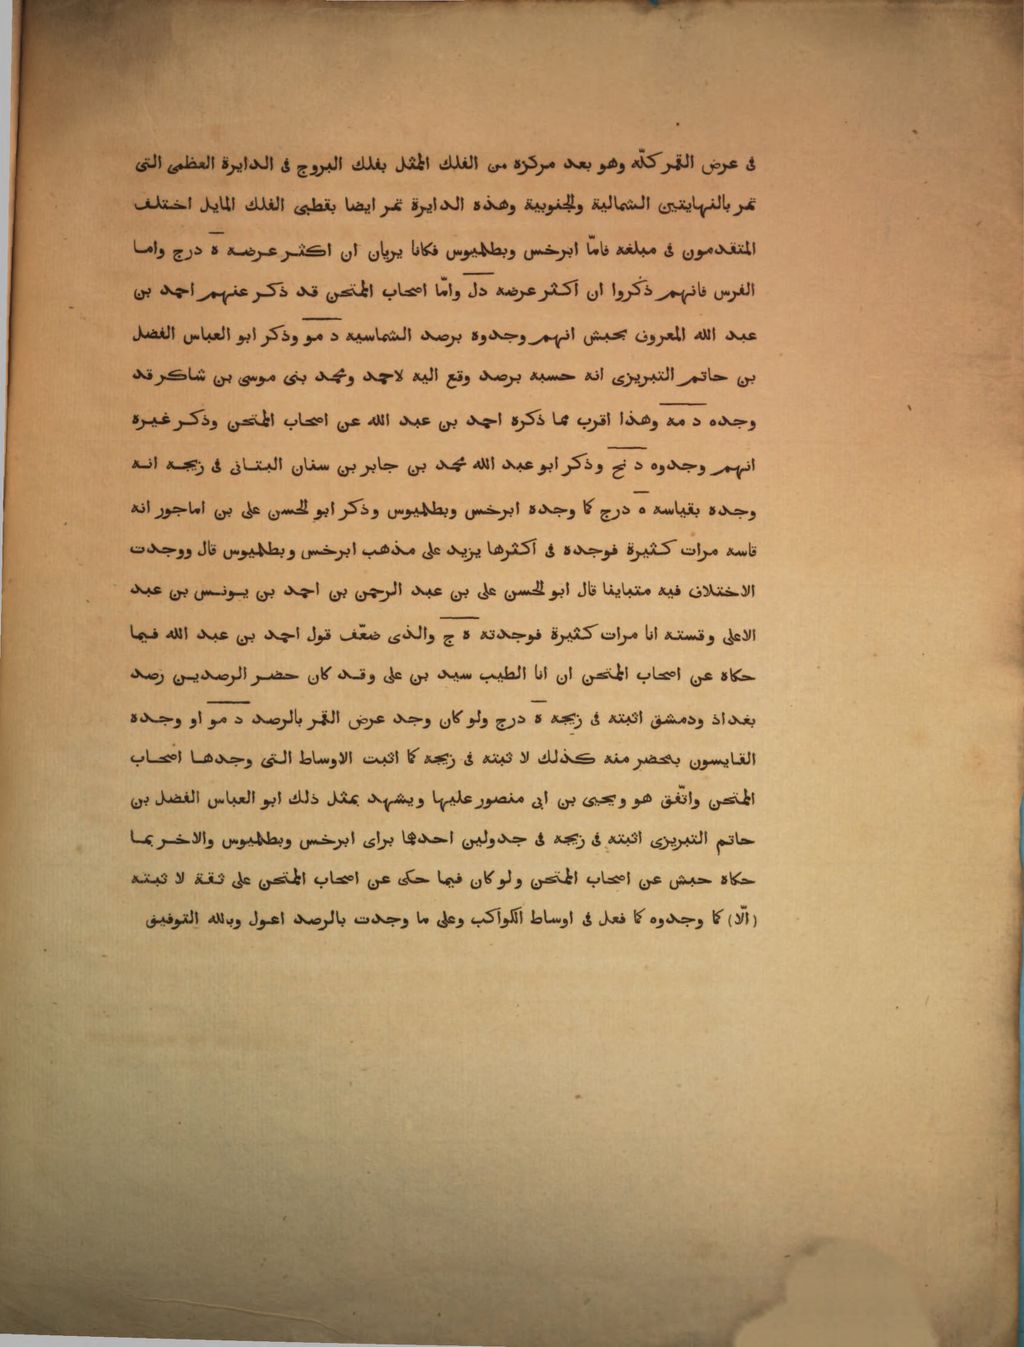 فى عرض القمر كلّه وهو بعد مركزه من الفلك الممثل بفلك البروج فى الدايرة العظمى التى
تمر بالنهايتين الشمالية والجنوبية وهذه الدايرة تمر ايضا بقطبى الفلك المايل اختلف
المتقدمون فى مبلغه فامّا ابرخس وبطلميوس فكانا يريان ان اكثر عرضه ه درج واما
الفرس فانهم ذكروا ان اكثر عرضه د ل وامّا اصحاب الممتحن قد ذكر عنهم احمد بن
عبد الله المعروف بحبش انهم وجدوه برصد الشماسيه د مو وذكر ابو العباس الفضل
بن حاتم التبريزى انه حسبه برصد وقع اليه لاحمد ومحمد بنى موسى بن شاكر قد
وجده د مه وهذا اقرب مما ذكره احمد بن عبد الله عن اصحاب الممتحن وذكر غيره
انهم وجدوه د نح وذكر ابو عبد الله محمد بن جابر بن سنان البتانى فى زيجه انه
وجده بقياسه ه درج كما وجده ابرخس وبطلميوس وذكر ابو الحسن على بن اماجور انه
قاسه مرات كثيرة فوجده فى اكثرها يزيد على مذهب ابرخس وبطلميوس قال ووجدت
الاختلاف فيه متباينا قال ابو الحسن على بن عبد الرحمن بن احمد بن يونس بن عبد
الاعلى وقسته انا مرات كثيرة فوجدته ه ج والذى ضعّف قول احمد بن عبد الله فيما
حكاه عن اصحاب الممتحن ان انا الطيب سيد بن على وقد كان حضر الرصدين رصد
بغداذ ودمشق اثبته فى زيجه ه درج ولو كان وجد عرض القمر بالرصد د مو او وجده
القايسون بمحضر منه كذلك لا ثبته فى زيجه كما اثبت الاوساط التى وجدها اصحاب
الممتحن واتّفق هو ويحيى بن ابى منصور عليها ويشهد بمثل ذلك ابو العباس الفضل بن
حاتم التبريزى اثبته فى زيجه فى جدولين احدهما براى ابرخس وبطلميوس والاخر بما
حكاه حبش عن اصحاب الممتحن ولو كان فيما حكى عن اصحاب الممتحن على ثقة لا ثبته
(الّا) كما وجدوه كما فعل فى اوساط الكواكب وعلى ما وجدت بالرصد اعول وبالله التوفيق